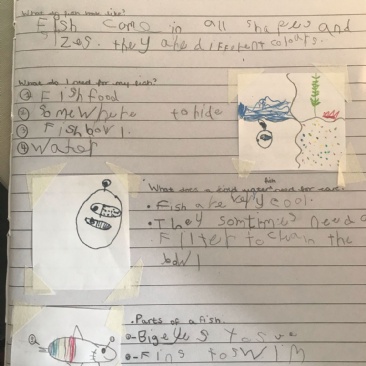 What do fish look like?
Fish come in all shapes and
zes. they are different colours.
What do I need for my fish?
① Fish food
② Somewhere to hide
③ Fish bowl.
④ Water
What does a need for care?
• Fish are very cool.
• They somtimes need a
Filter to clean the
bowl
Parts of a fish.
- Big eyes to see
- Fins to swim